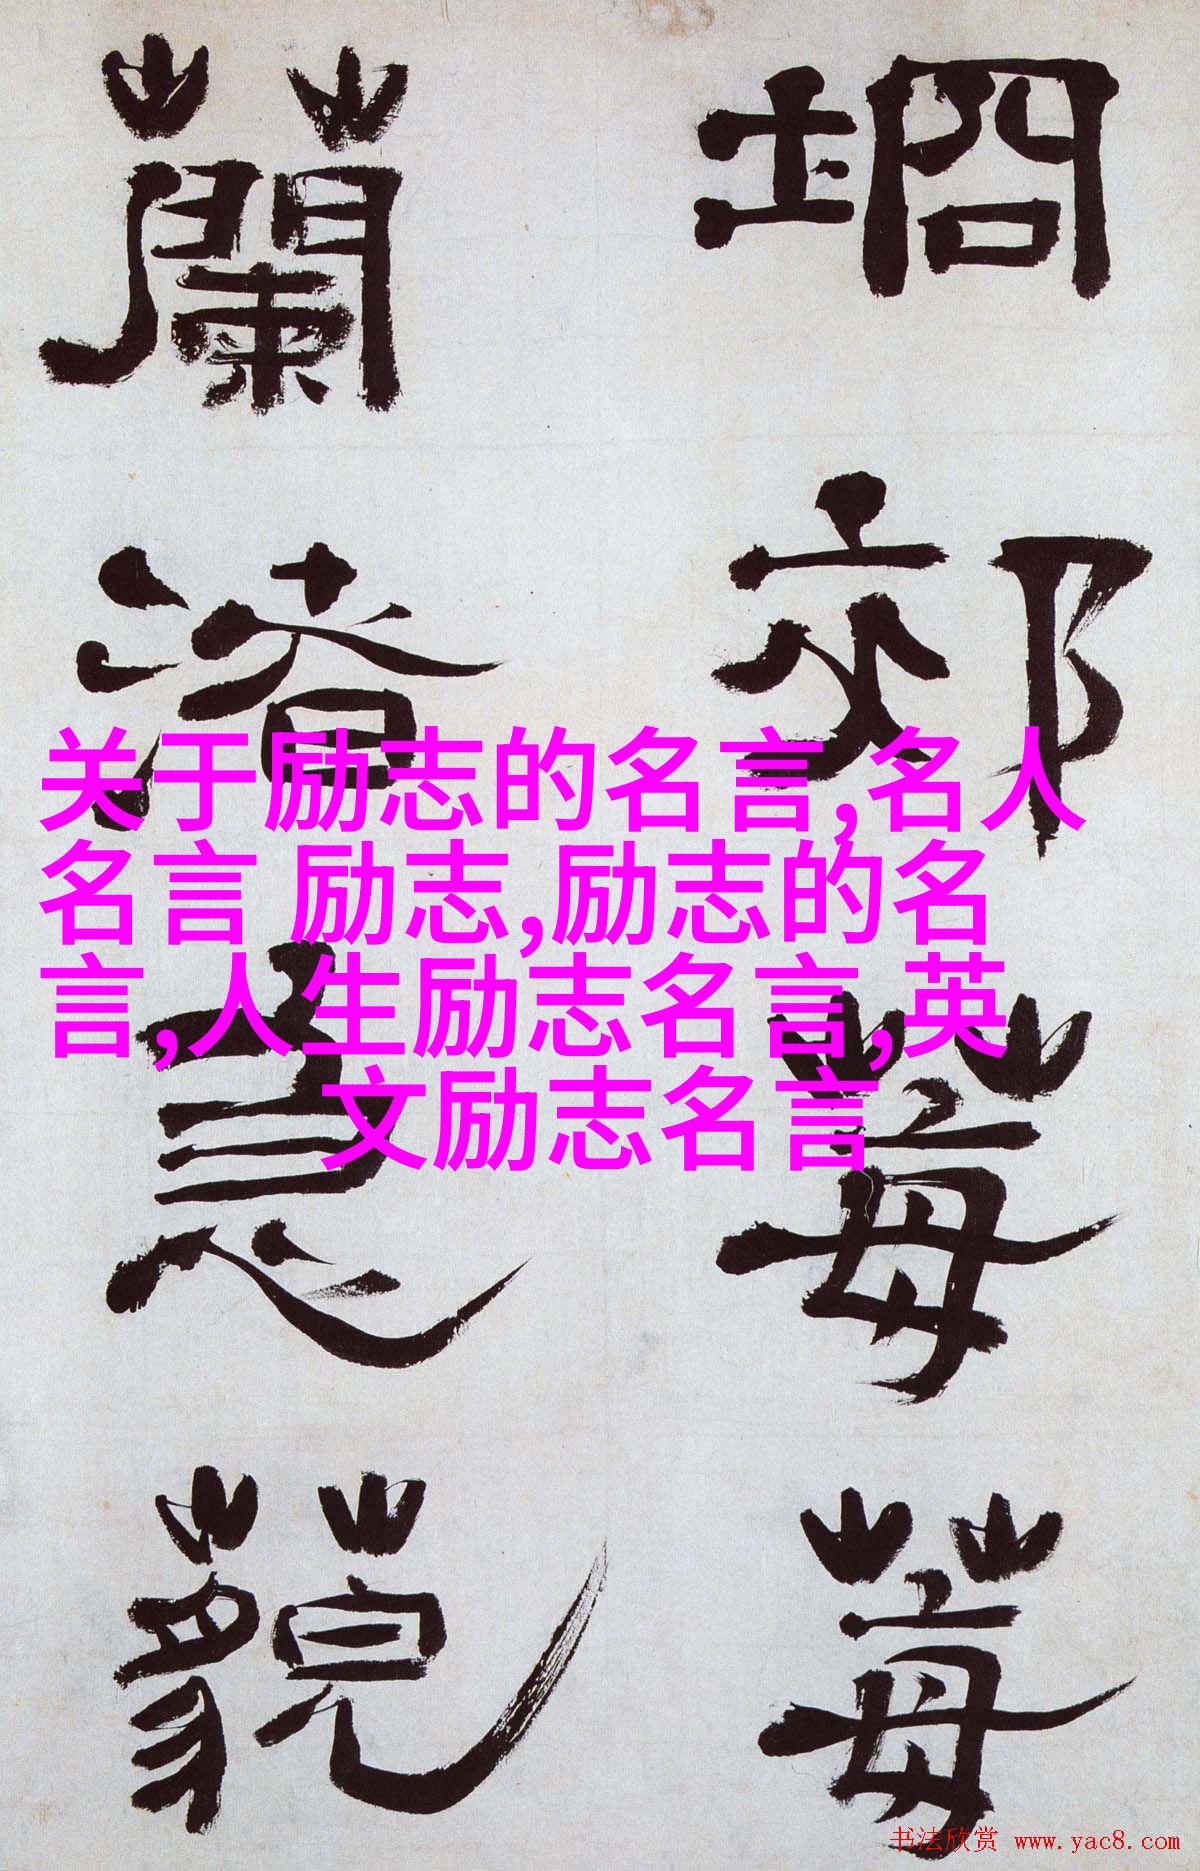 坰郊莓莓
蘭渚急藐
关于励志的名言,名人
名言 励志,励志的名
言,人生励志名言,英
文励志名言
书法欣赏 www.yac8.com